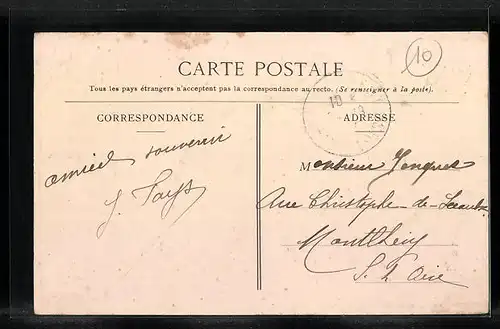 10
CARTE POSTALE
Tous les pays étrangers n'acceptent pas la correspondance au recto. (Se renseigner à la poste).
CORRESPONDANCE
ADRESSE
amical souvenir
Monsieur
Rue Christophe-de-Saulx
Montlhéry
S. & Oise